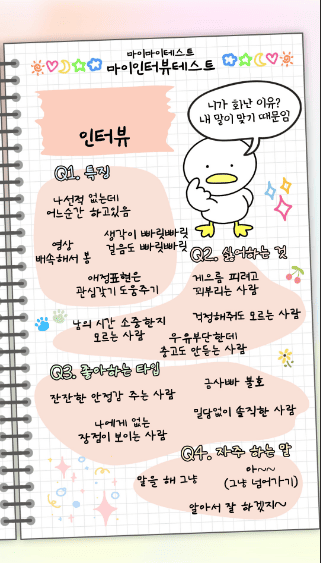 마이마이테스트
마이인터뷰테스트
니가 화난 이유?
내 말이 맞기 때문임
인터뷰
Q1. 특징
나선적 없는데
어느순간 하고있음
생각이 빠릿빠릿
걸음도 빠릿빠릿
영상
배속해서 봄
애정표현은
관심갖기 도움주기
Q2. 싫어하는 것
게으름 피려고
꾀부리는 사람
걱정해줘도 모르는 사람
남의 시간 소중한지
모르는 사람
우유부단한데
충고도 안듣는 사람
Q3. 좋아하는 타입
잔잔한 안정감 주는 사람
금사빠 불호
밀당없이 솔직한 사람
나에게 없는
장점이 보이는 사람
Q4. 자주 하는 말
말을 왜 그냥
아~~
(그냥 넘어가기)
알아서 잘 하겠지~